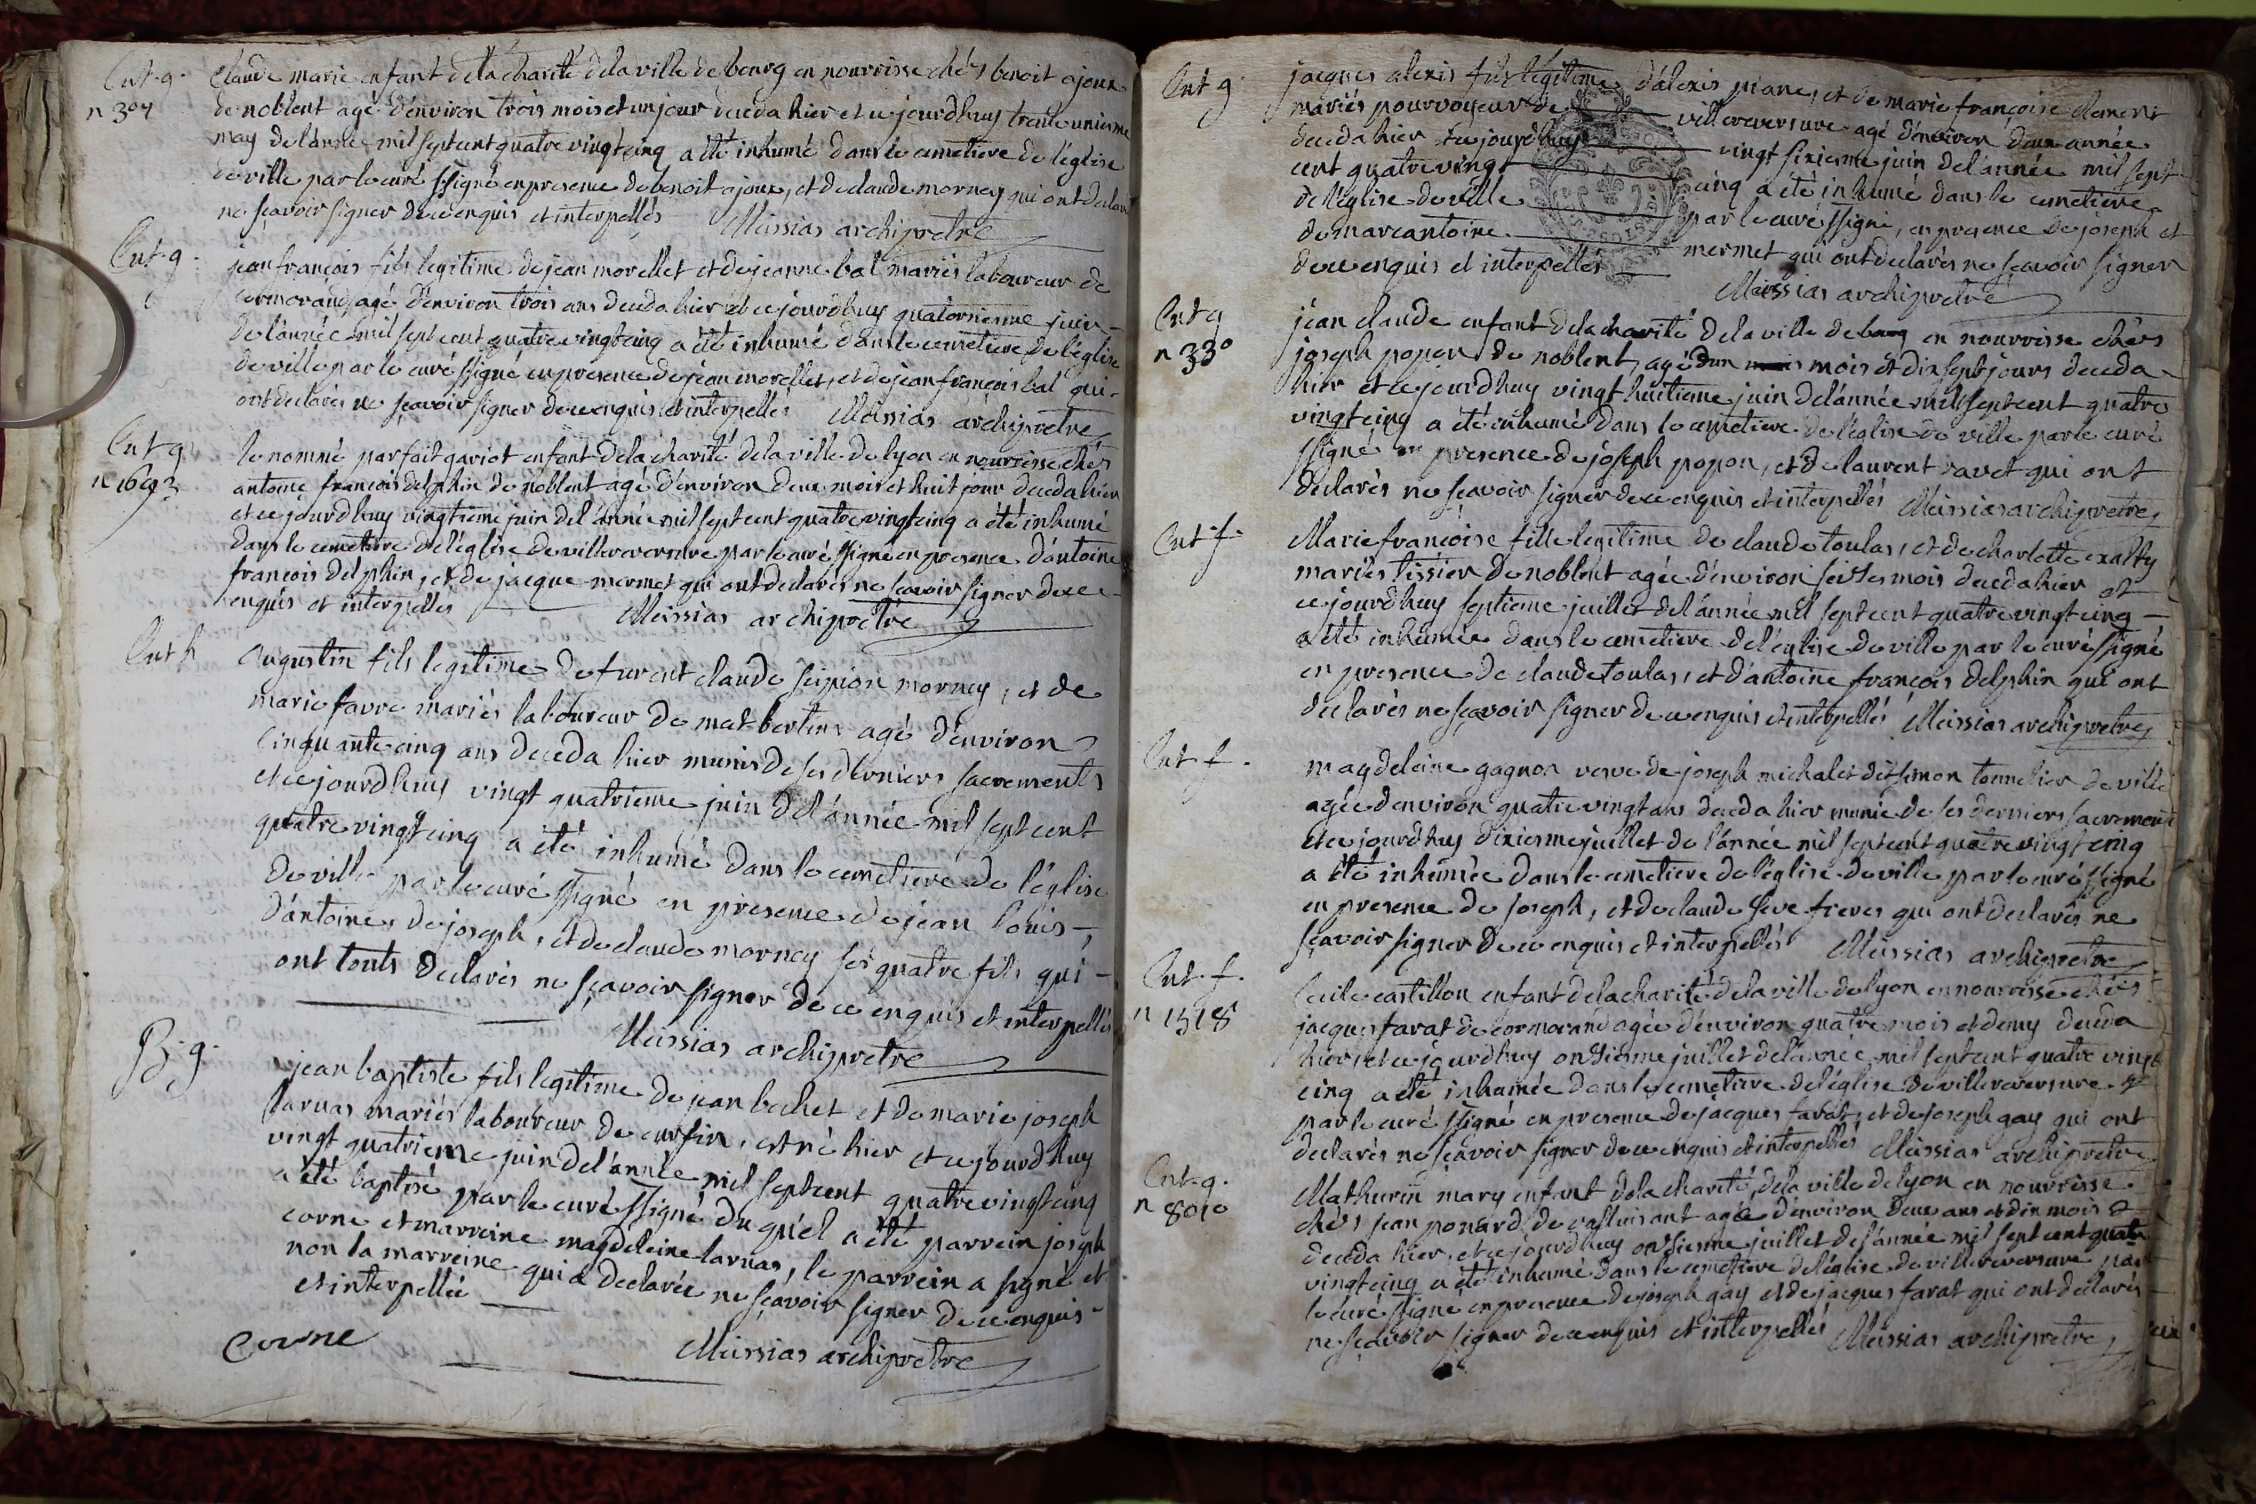 Ent. g.
n 304
Claude marie enfant de la charité de la ville de bourg en nourrisse chés benoit ajoux
de noblent agé d'environ trois mois et un jour deceda hier et ce jourdhuy trente unieme
may de l'année mil sept cent quatre vingt cinq a été inhumé dans le cemetiere de l'église
de ville par le curé ssigné en presence de benoit ajoux, et de claude mornay qui ont declaré
ne sçavoir signer de ce enquis et interpellés Messias archipretre
Ent. g.
jean françois fils legitime de jean morellet et de jeanne bal mariés laboureur de
cormorand agé d'environ trois ans deceda hier et ce jourdhuy quatorzieme juin
de l'année mil sept cent quatre vingt cinq a été inhumé dans le cemetiere de l'église
de ville par le curé ssigné en presence de jean morellet, et de jean françois bal qui
ont declarés ne sçavoir signer de ce enquis et interpellés Messias archipretre
Ent g
n 1693
le nommé parfait gariot enfant de la charité de la ville de lyon en nourrisse chés
antoine françois delphin de noblent agé d'environ deux mois et huit jour deceda hier
et ce jourdhuy vingtieme juin de l'année mil sept cent quatre vingt cinq a été inhumé
dans le cemetiere de l'église de villereversure par le curé ssigné en presence d'antoine
françois delphin, et de jacque mermet qui ont declarés ne sçavoir signer de ce
enquis et interpellés Messias archipretre
Ent h
Augustin fils legitime de furent claude scipion mornay, et de
marie favre mariés laboureur de mas bertin agé d'environ
cinquante cinq ans deceda hier munis de ses derniers sacrements
et ce jourdhuy vingt quatrieme juin de l'année mil sept cent
quatre vingt cinq a été inhumé dans le cemetiere de l'église
de ville par le curé ssigné en presence de jean louis
d'antoine, de joseph, et de claude mornay ses quatre fils qui
ont touts declarés ne sçavoir signer de ce enquis et interpellés
Messias archipretre
B. g.
jean baptiste fils legitime de jean bochet et de marie joseph
larnas mariés laboureur de curfin, est né hier et ce jourdhuy
vingt quatrieme juin de l'année mil sept cent quatre vingt cinq
a été baptisé par le curé ssigné du quel a été parrein joseph
corne et marreine magdeleine larnas, le parrein a signé et
non la marreine qui a declarée ne sçavoir signer de ce enquis
et interpellée
Corne Messias archipretre
Ent g
jacques alexis fils légitime d'alexis piane, et de marie françoise clement
mariés pourvoyeur de villereversure agé d'environ d'une année
deceda hier et ce jourdhuy vingt sixiesme juin de l'année mil sept
cent quatre vingt cinq a été inhumé dans le cemetiere
de l'église de ville par le curé ssigné, en presence de joseph et
de marcantoine mermet qui ont declarés ne sçavoir signer
de ce enquis et interpellés
Messias archipretre
Ent g
n 330
jean claude enfant de la charité de la ville de bourg en nourrisse chés
joseph popon de noblent, agé d'un mois et dix sept jours deceda
hier et ce jourdhuy vingt huitieme juin de l'année mil sept cent quatre
vingt cinq a été inhumé dans le cemetiere de l'église de ville par le curé
ssigné en presence de joseph popon, et de laurent ravet qui ont
declarés ne sçavoir signer de ce enquis et interpellés Messias archipretre
Ent. f.
Marie françoise fille legitime de claude toulas, et de charlotte
mariés tissier de noblent agée d'environ seizes mois deceda hier et
ce jourdhuy septieme juillet de l'année mil sept cent quatre vingt cinq
a été inhumée dans le cemetiere de l'église de ville par le curé ssigné
en presence de claude toulas, et d'antoine françois delphin qui ont
declarés ne sçavoir signer de ce enquis et interpellés Messias archipretre
Ent. f.
magdeleine gagnon veuve de joseph michalet dit simon tonnelier de ville
agée d'environ quatre vingt ans deceda hier munie de ses derniers sacrements
et ce jourdhuy dixiesme juillet de l'année mil sept cent quatre vingt cinq
a été inhumée dans le cemetiere de l'église de ville par le curé ssigné
en presence de joseph, et de claude seve freres qui ont declarés ne
sçavoir signer de ce enquis et interpellés Messias archipretre
Ent. f.
n 1518
Cecile castillon enfant de la charité de la ville de lyon en nourrisse chés
jacques favat de cormorand agée d'environ quatre mois et demy deceda
hier, et ce jourdhuy onzieme juillet de l'année mil sept cent quatre vingt
cinq a été inhumée dans le cemetiere de l'église de villereversure
par le curé ssigné en presence de jacques favat, et de joseph gay qui ont
declarés ne sçavoir signer de ce enquis et interpellés Messias archipretre
Ent. g.
n 8010
Mathurin mary enfant de la charité de la ville de lyon en nourrisse
chés jean ponard de agée d'environ deux ans et dix mois
deceda hier, et ce jourdhuy onzieme juillet de l'année mil sept cent quatre
vingt cinq a été inhumé dans le cemetiere de l'église de villereversure par
le curé ssigné en presence de joseph gay et de jacques favat qui ont declarés
ne sçavoir signer de ce enquis et interpellés Messias archipretre